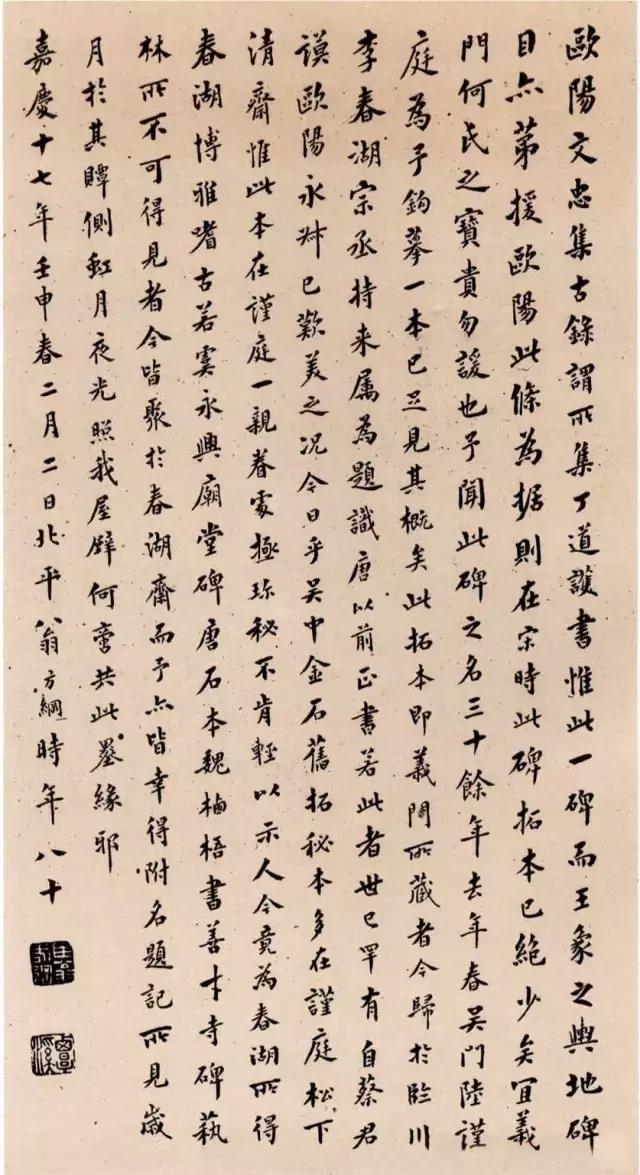 歐陽文忠集古錄謂所集丁道護書惟此一碑而王象之輿地碑
目亦第援歐陽此條為据則在宋時此碑拓本已絶少矣宜義
門何氏之寶貴勿諼也予聞此碑之名三十餘年去年春吴門陸謹
庭為予鉤摹一本已足見其概矣此拓本即義門所藏者今歸於臨川
李春湖宗丞持来属為題識唐以前正書若此者世已罕有自蔡君
謨歐陽永叔已歎美之况今日乎吴中金石舊拓秘本多在謹庭松下
清齋惟此本在謹庭一親眷處極珎秘不肯輕以示人今竟為春湖所得
春湖博雅嗜古若虞永興廟堂碑唐石本魏栖梧書善才寺碑蓺
林所不可得見者今皆聚於春湖齋而予亦皆幸得附名題記所見歲
月於其贉側虹月夜光照我屋壁何啻共此墨緣耶
嘉慶十七年壬申春二月二日北平翁方綱時年八十